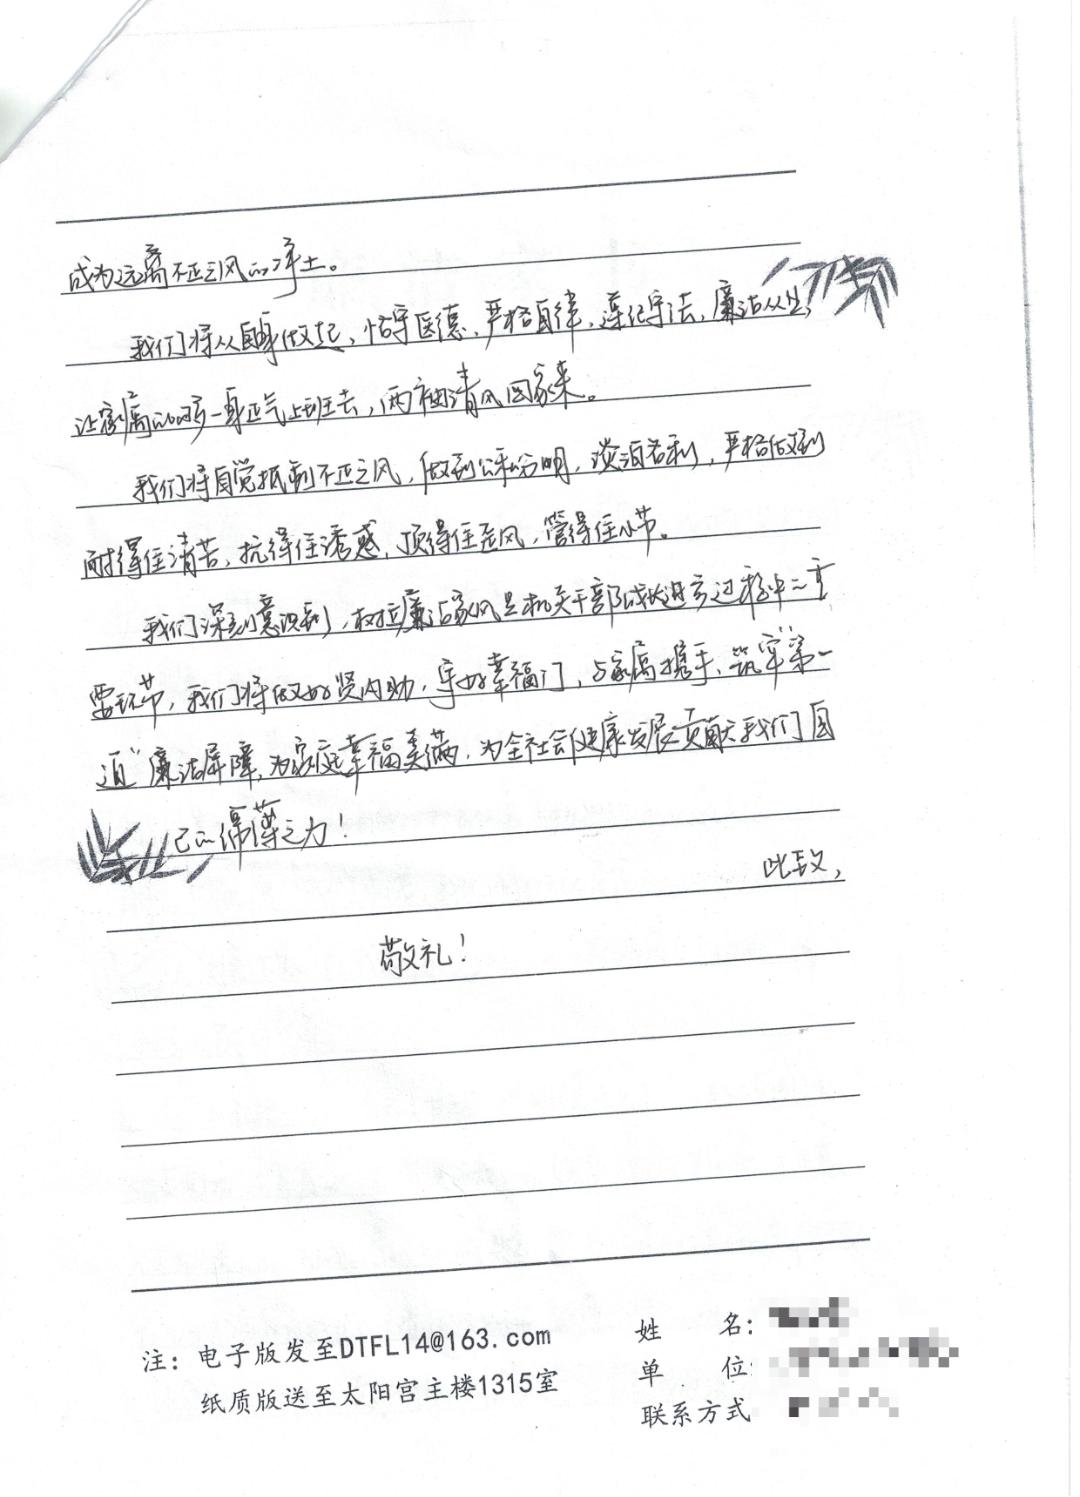 成为远离不正之风的净土。
我们将从自身做起，恪守医德、严格自律、遵纪守法、廉洁从业，
让家属能够一身正气上班去，两袖清风回家来。
我们将自觉抵制不正之风，做到公私分明，淡泊名利，严格做到
耐得住清苦，抗得住诱惑，顶得住歪风，管得住小节。
我们深刻意识到，树立廉洁家风是机关干部成长进步过程中的重
要环节，我们将做好贤内助，守好幸福门，与家属携手，筑牢“第一
道”廉洁屏障，为家庭幸福美满，为全社会健康发展贡献我们自
己的绵薄之力！
此致，
敬礼！
注：电子版发至DTFL14@163.com
纸质版送至太阳宫主楼1315室
姓 名：
单 位：
联系方式